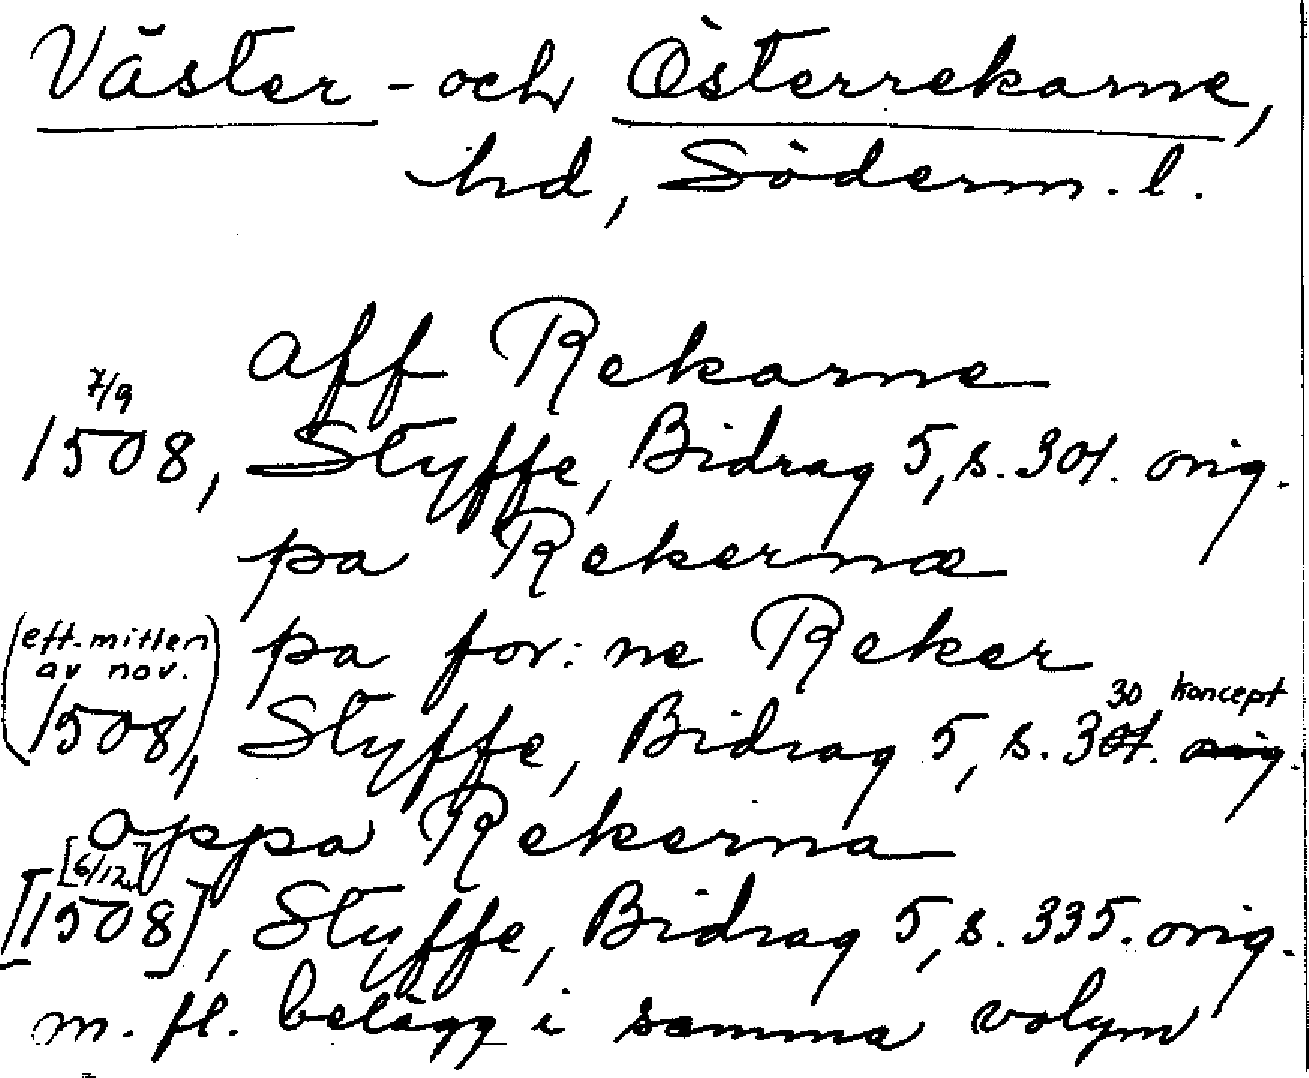 Väster- och Österrekarne,
hd, Söderm. l.
aff Rekarne
7/9
1508, Styffe, Bidrag 5, s. 301. orig.
pa Rekernæ
(eft. mitten av nov.) pa for:ne Reker
30 koncept
1508, Styffe, Bidrag 5, s. orig.
oppa Rekerna
[6/12]
[1508], Styffe, Bidrag 5, s. 335. orig.
m. fl. belägg i samma volym